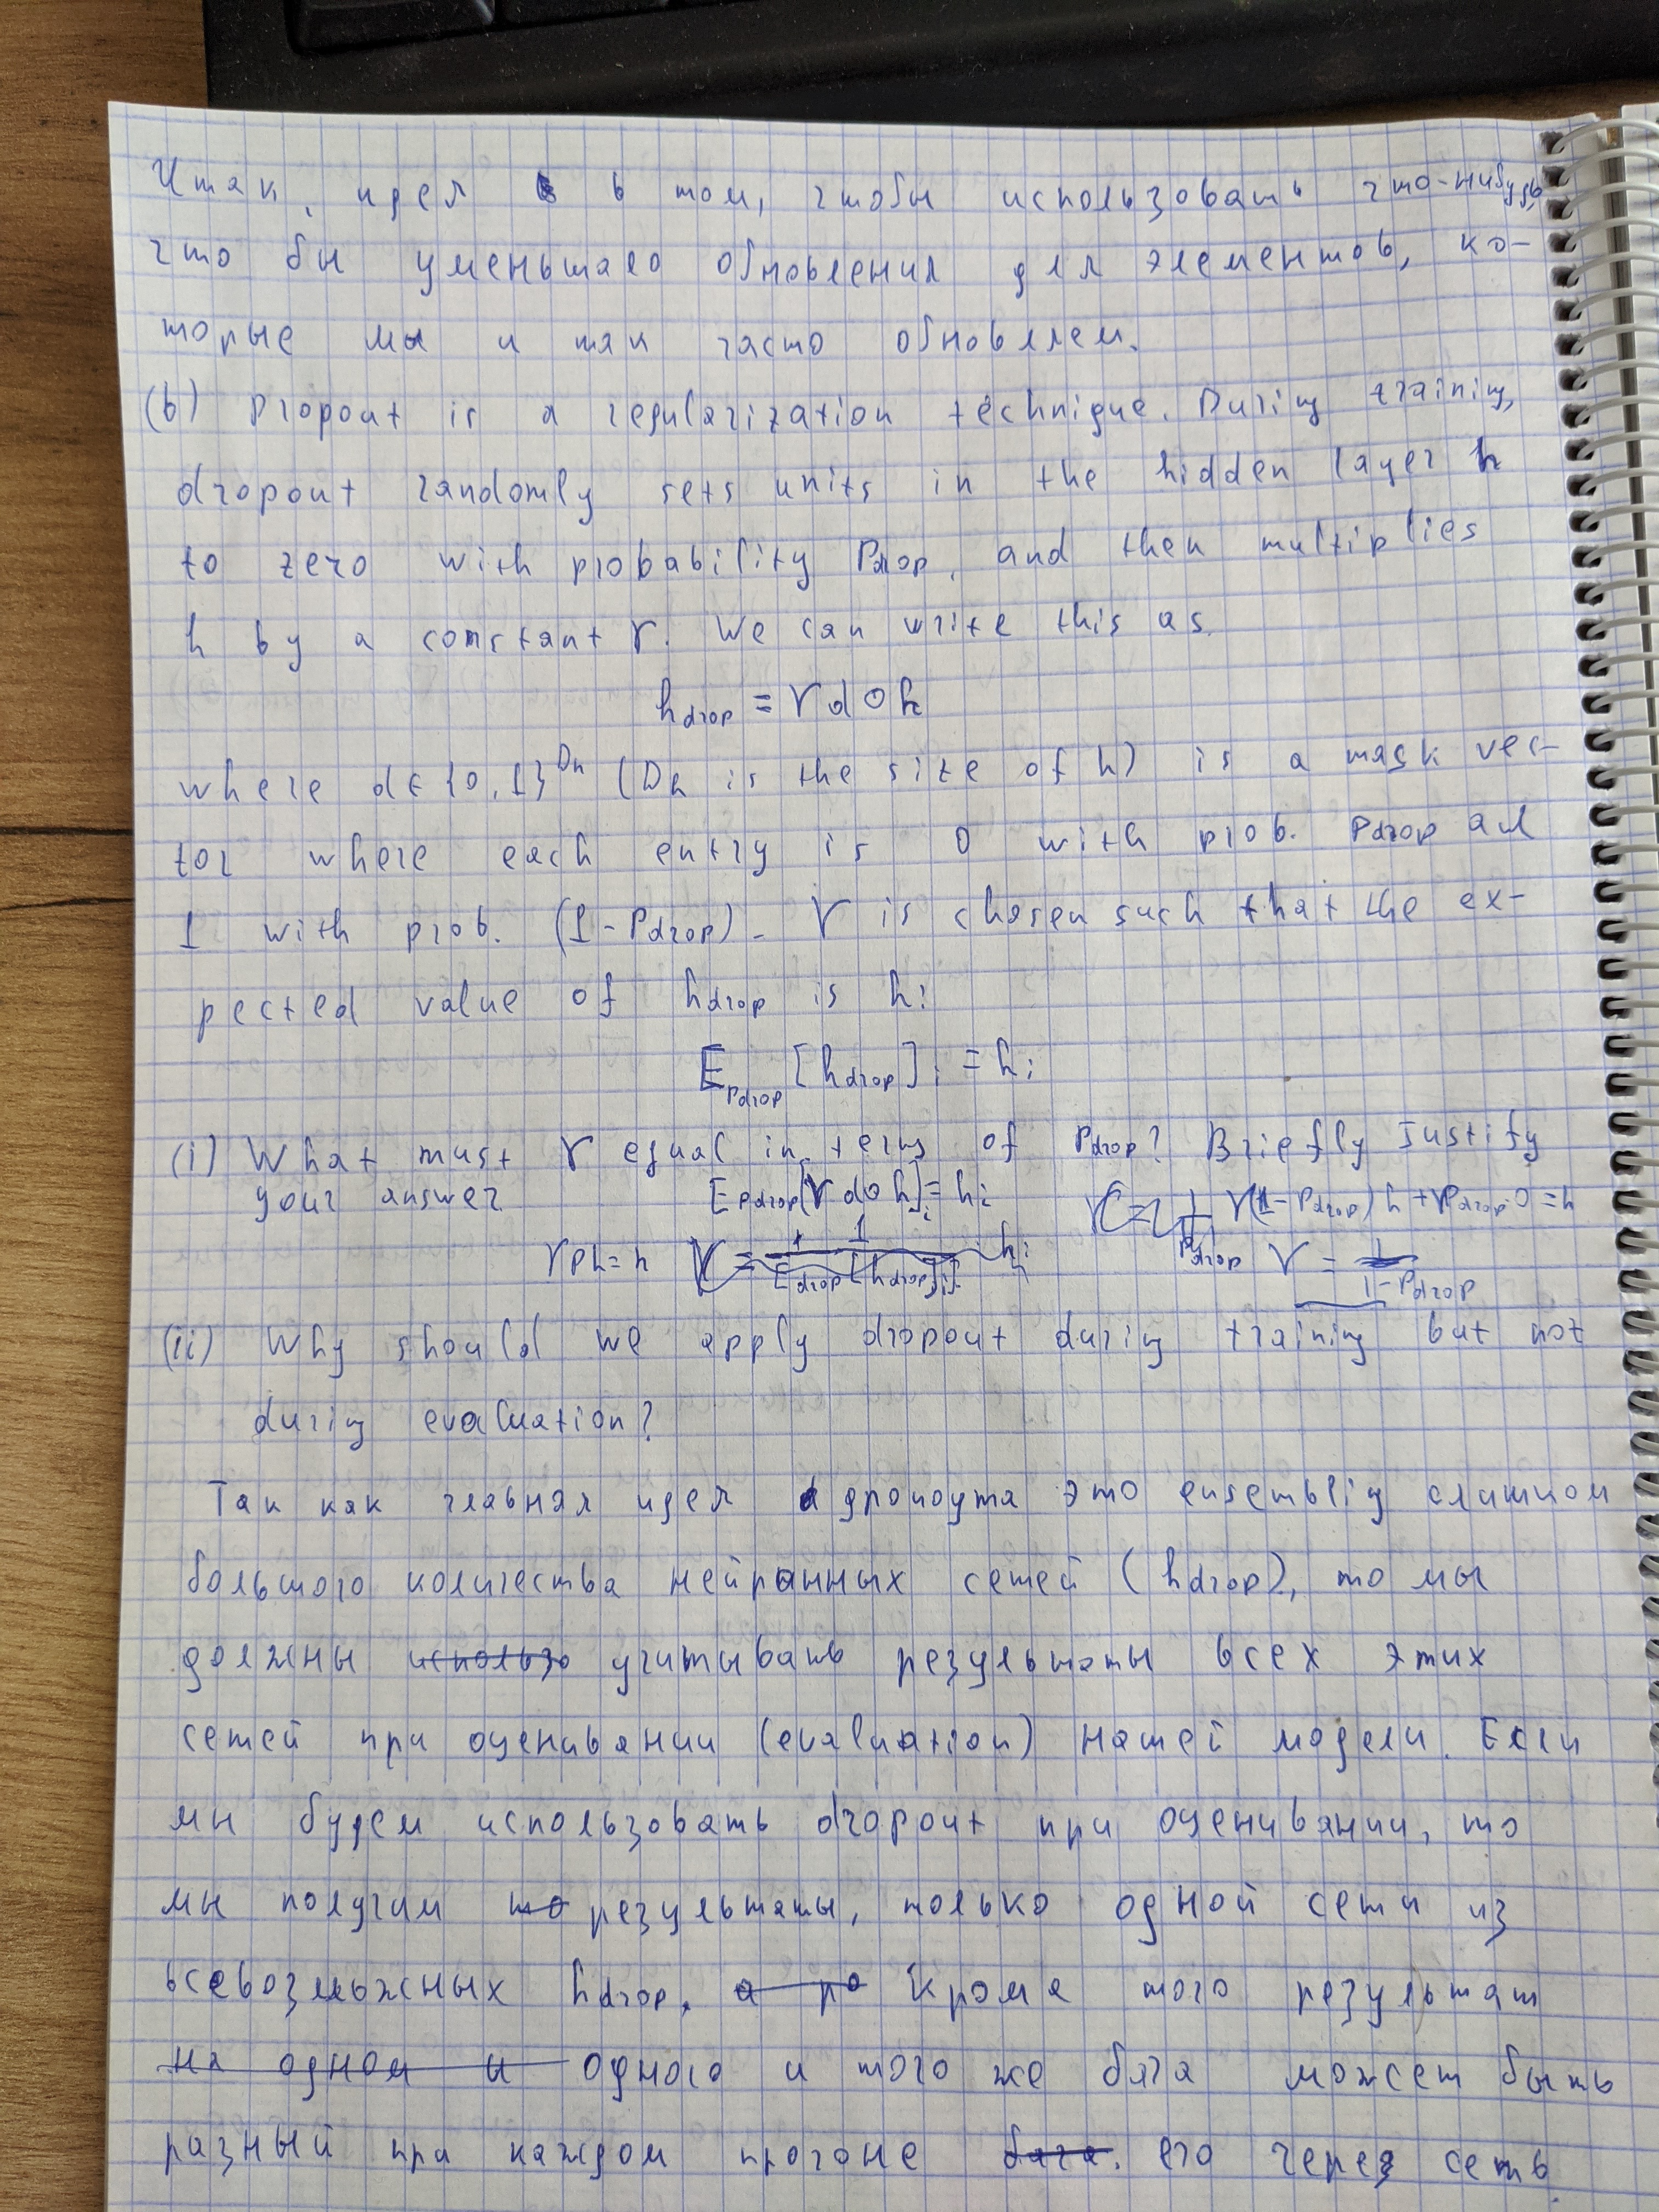 Итак, идея в том, чтобы использовать что-нибудь,
что бы уменьшало обновления для элементов, ко-
торые мы и так часто обновляем.
(b) Dropout is a regularization technique. During training,
dropout randomly sets units in the hidden layer h
to zero with probability Pdrop, and then multiplies
h by a constant γ. We can write this as
hdrop = γ d ∘ h
where d ∈ {0, 1}^Dh (Dh is the size of h) is a mask vec-
tor where each entry is 0 with prob. Pdrop and
1 with prob. (1 - Pdrop). γ is chosen such that the ex-
pected value of hdrop is h:
E_Pdrop [hdrop]i = hi
(i) What must γ equal in terms of Pdrop? Briefly Justify
your answer E_Pdrop[γ d ∘ h]i = hi γ(1 - Pdrop) h + γ Pdrop · 0 = h
γph = h γ = 1/(1 - Pdrop)
(ii) Why should we apply dropout during training but not
during evaluation?
Так как главная идея дропоута это ensemblig слишком
большого количества нейронных сетей (hdrop), то мы
должны использо учитывать результаты всех этих
сетей при оценивании (evaluation) нашей модели. Если
мы будем использовать dropout при оценивании, то
мы получим то результаты, только одной сети из
всевозможных hdrop, а ро Кроме того результат
на одном и одного и того же бача может быть
разный при каждом прогоне бача. его через сеть